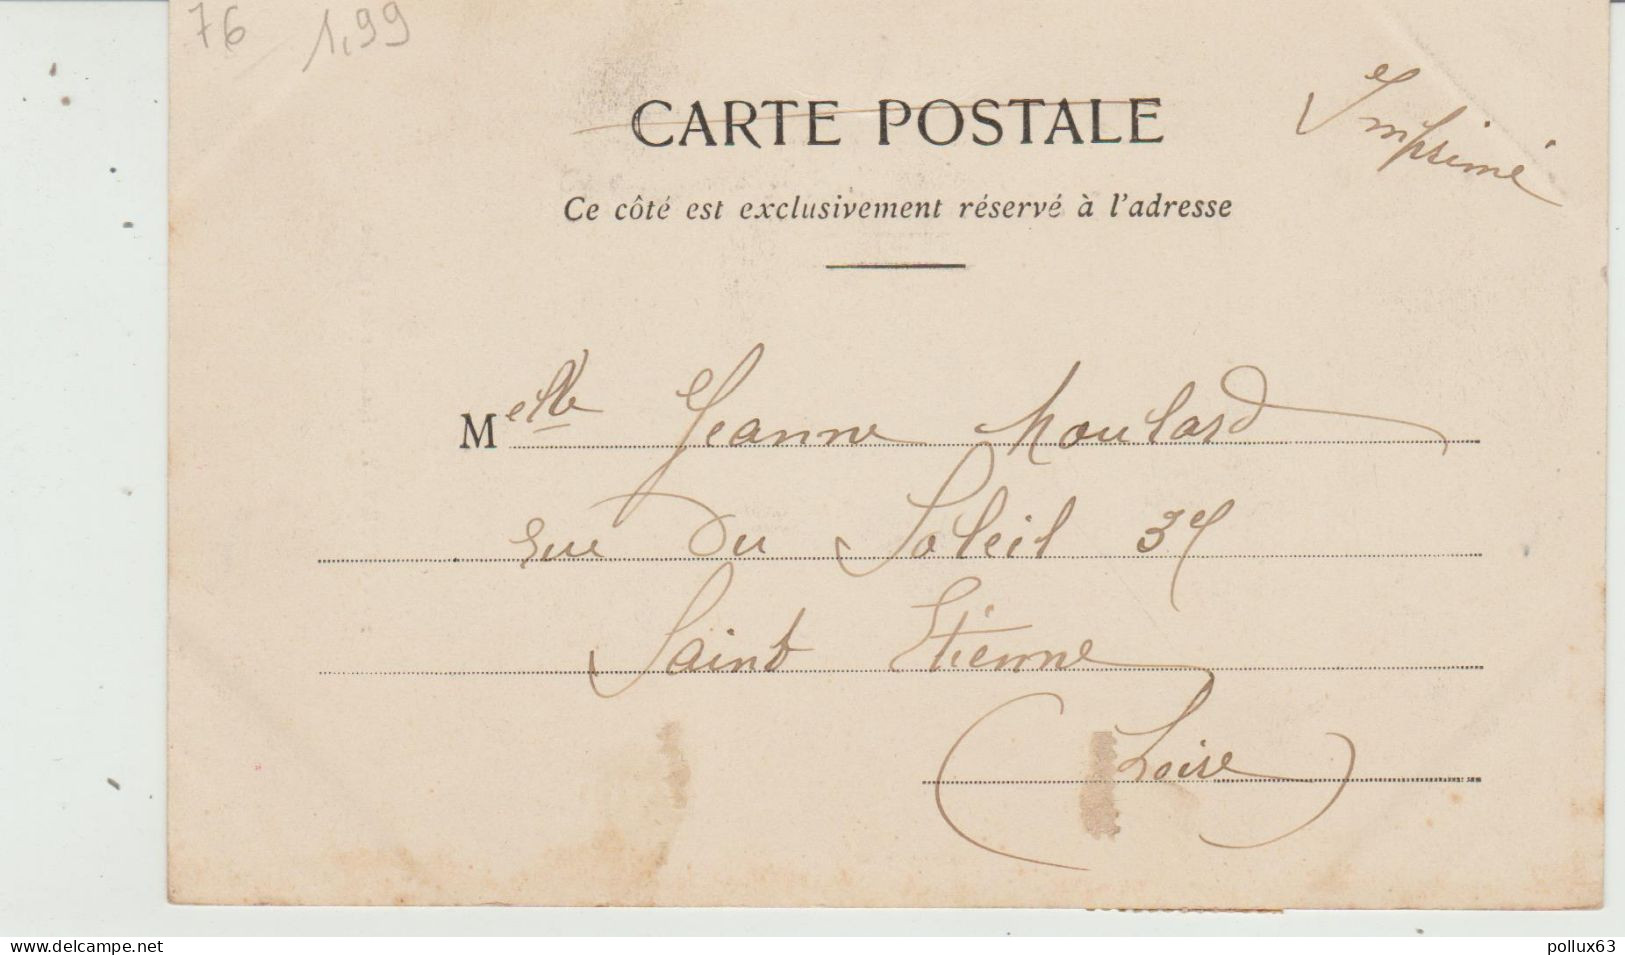 76 1,99
CARTE POSTALE
Imprimé
Ce côté est exclusivement réservé à l'adresse
Melle Jeanne Moulard
rue du Soleil 37
Saint Etienne
(Loire)
www.delcampe.net
pollux63